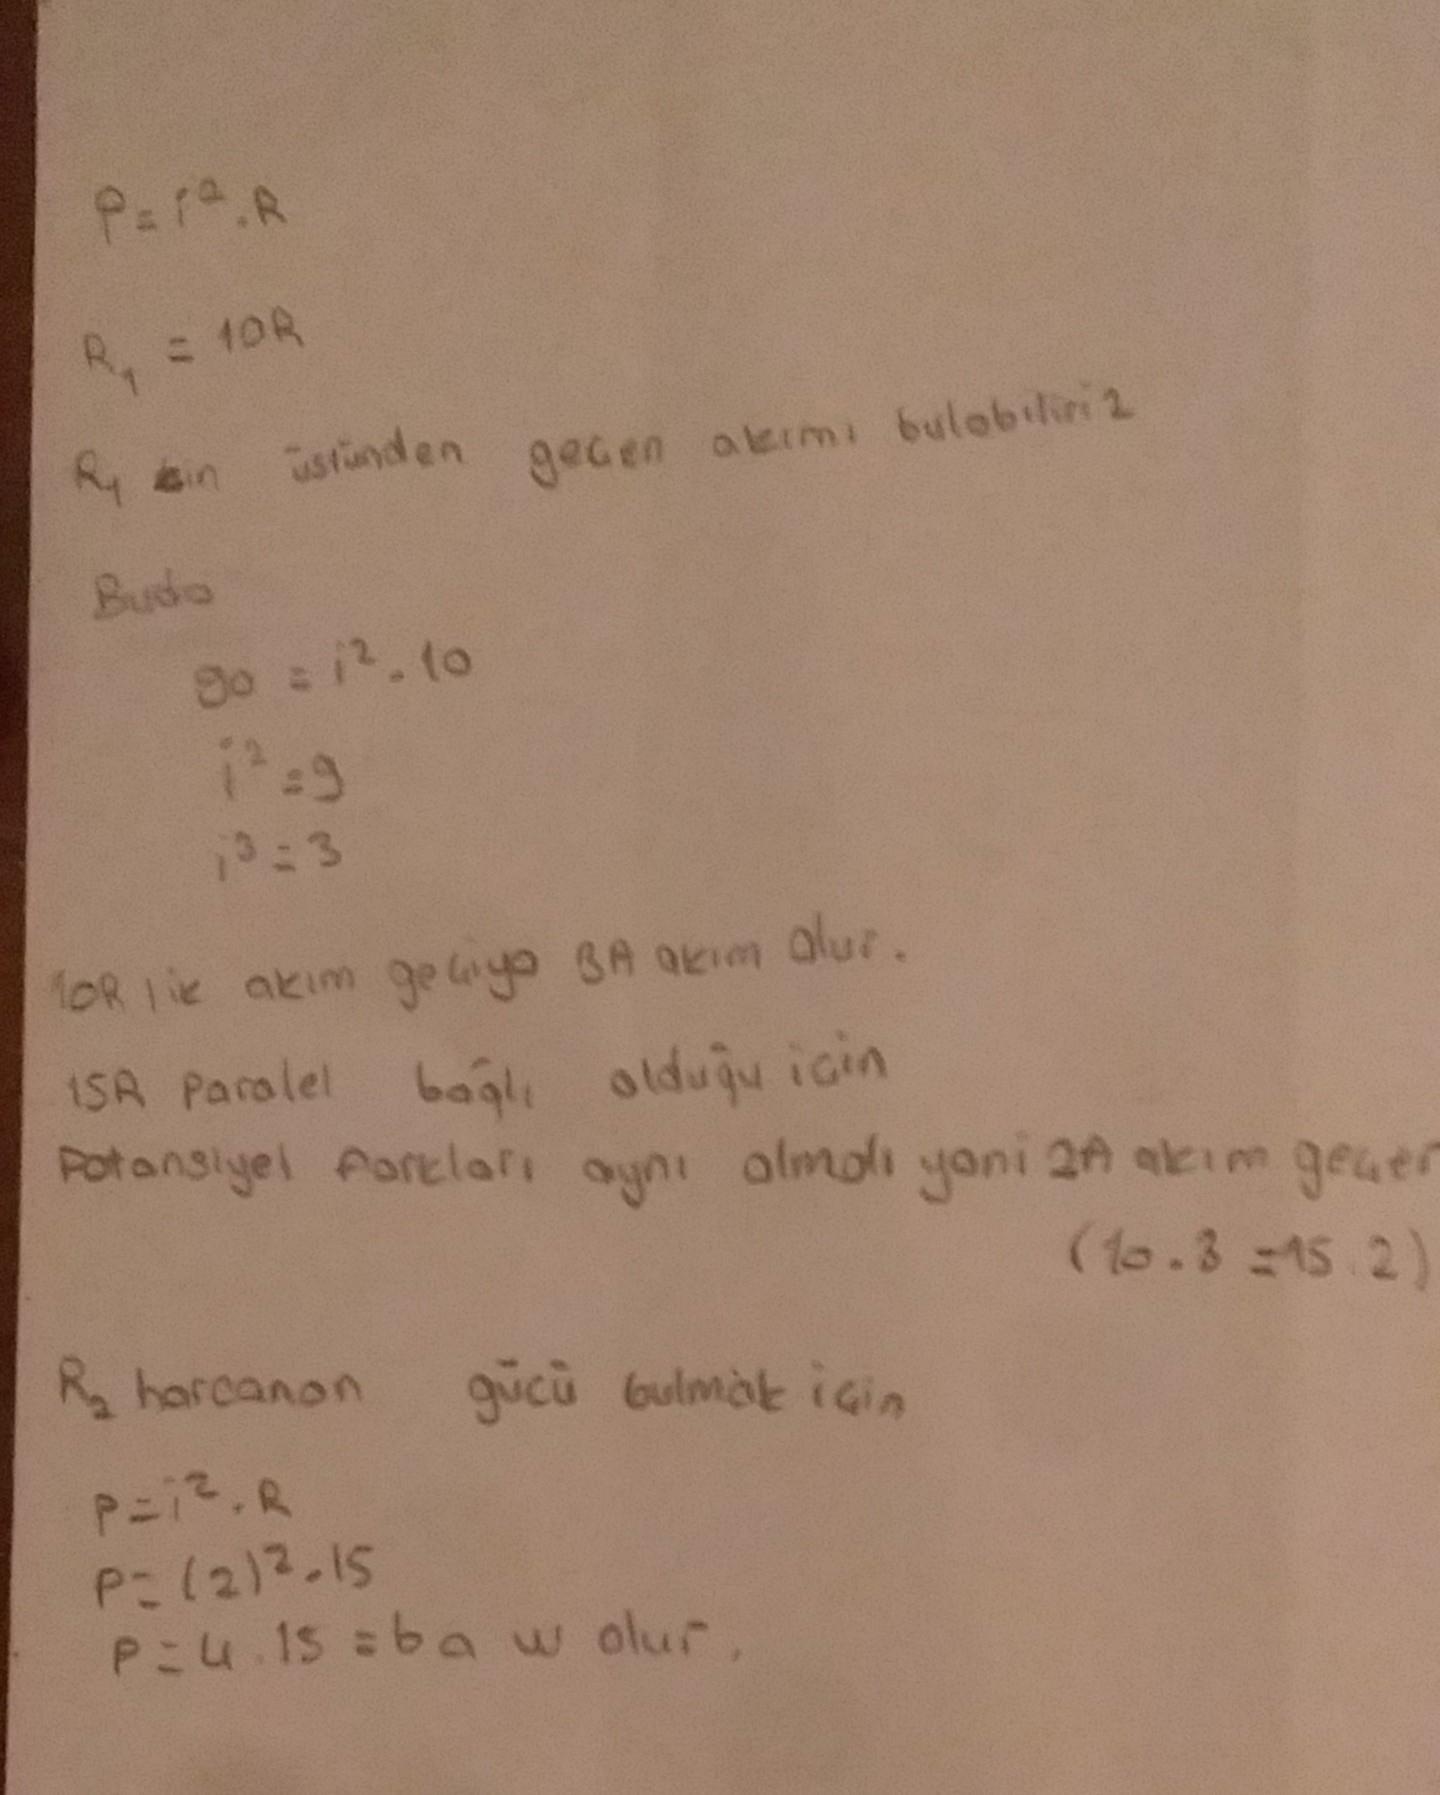 P = i² . R
R₁ = 10R
R₁ in üstünden geçen akımı bulabiliriz
Buda
90 = i² . 10
i² = 9
i³ = 3
10R lik akım geçiyo 3A akım olur.
15R Paralel bağlı olduğu için
Potansiyel Farkları aynı olmalı yani 2A akım geçer
(10 . 3 = 15 . 2)
R₂ harcanan gücü bulmak için
P = i² . R
P = (2)² . 15
P = 4 . 15 = 60 w olur.